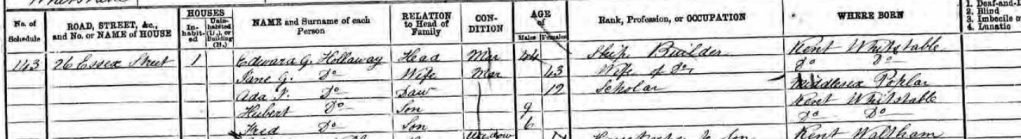 No. of Schedule ROAD, STREET, &c., and No. or NAME of HOUSE HOUSES Inhabited Uninhabited (U.), or Building (B.) NAME and Surname of each Person RELATION to Head of Family CONDITION AGE of Males Females Rank, Profession, or OCCUPATION WHERE BORN 1. Deaf-and-D
2. Blind
3. Imbecile o
4. Lunatic
143 26 Essex Street 1 Edward G. Hollaway Head Mar 44 Ship Builder Kent Whitstable
Jane G. Do Wife Mar 43 Wife of Do Do Do
Ada Do Daur 12 Scholar Middlesex Poplar
Hubert Do Son 9 Kent Whitstable
Fred Do Son 6 Do Do
Widow Kent Waltham